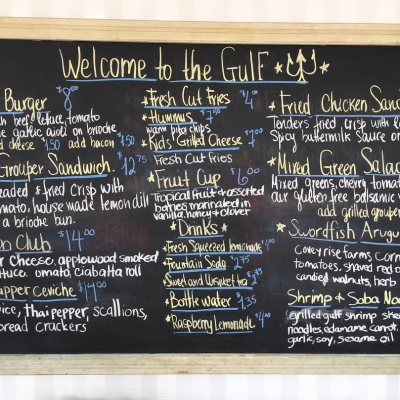 Welcome to the Gulf
Burger $8.00
beef, lettuce, tomato
garlic aioli on brioche
cheese $.50 add bacon $1.50
Grouper Sandwich $12.75
readed & fried crisp with
omato, house made lemon dill
a brioche bun.
Club $14.00
r cheese, applewood smoked
ttuce, tomato ciabatta roll
apper Ceviche $14.00
ice, thai pepper, scallions,
bread crackers
Fresh Cut Fries $4.00
Hummus
warm pita chips
Kids' Grilled Cheese
Fresh Cut Fries
Fruit Cup $6.00
Tropical fruit & assorted
berries marinated in
vanilla, honey & clover
Drinks
Fresh Squeezed lemonade
Fountain Soda
Sweet and Unsweet tea
Bottle water
Raspberry Lemonade
Fried Chicken Sand
Tenders fried crisp with le
Spicy buttermilk sauce on
Mixed Green Salad
Mixed greens, cherry tomato
our gluten free balsamic v
add grilled grouper
Swordfish Arugu
Covey rise farms corn
tomatoes, shaved red o
candied walnuts, herb
Shrimp & Soba Noo
grilled gulf shrimp
noodles, edamame, carrot,
garlic, soy, sesame oil